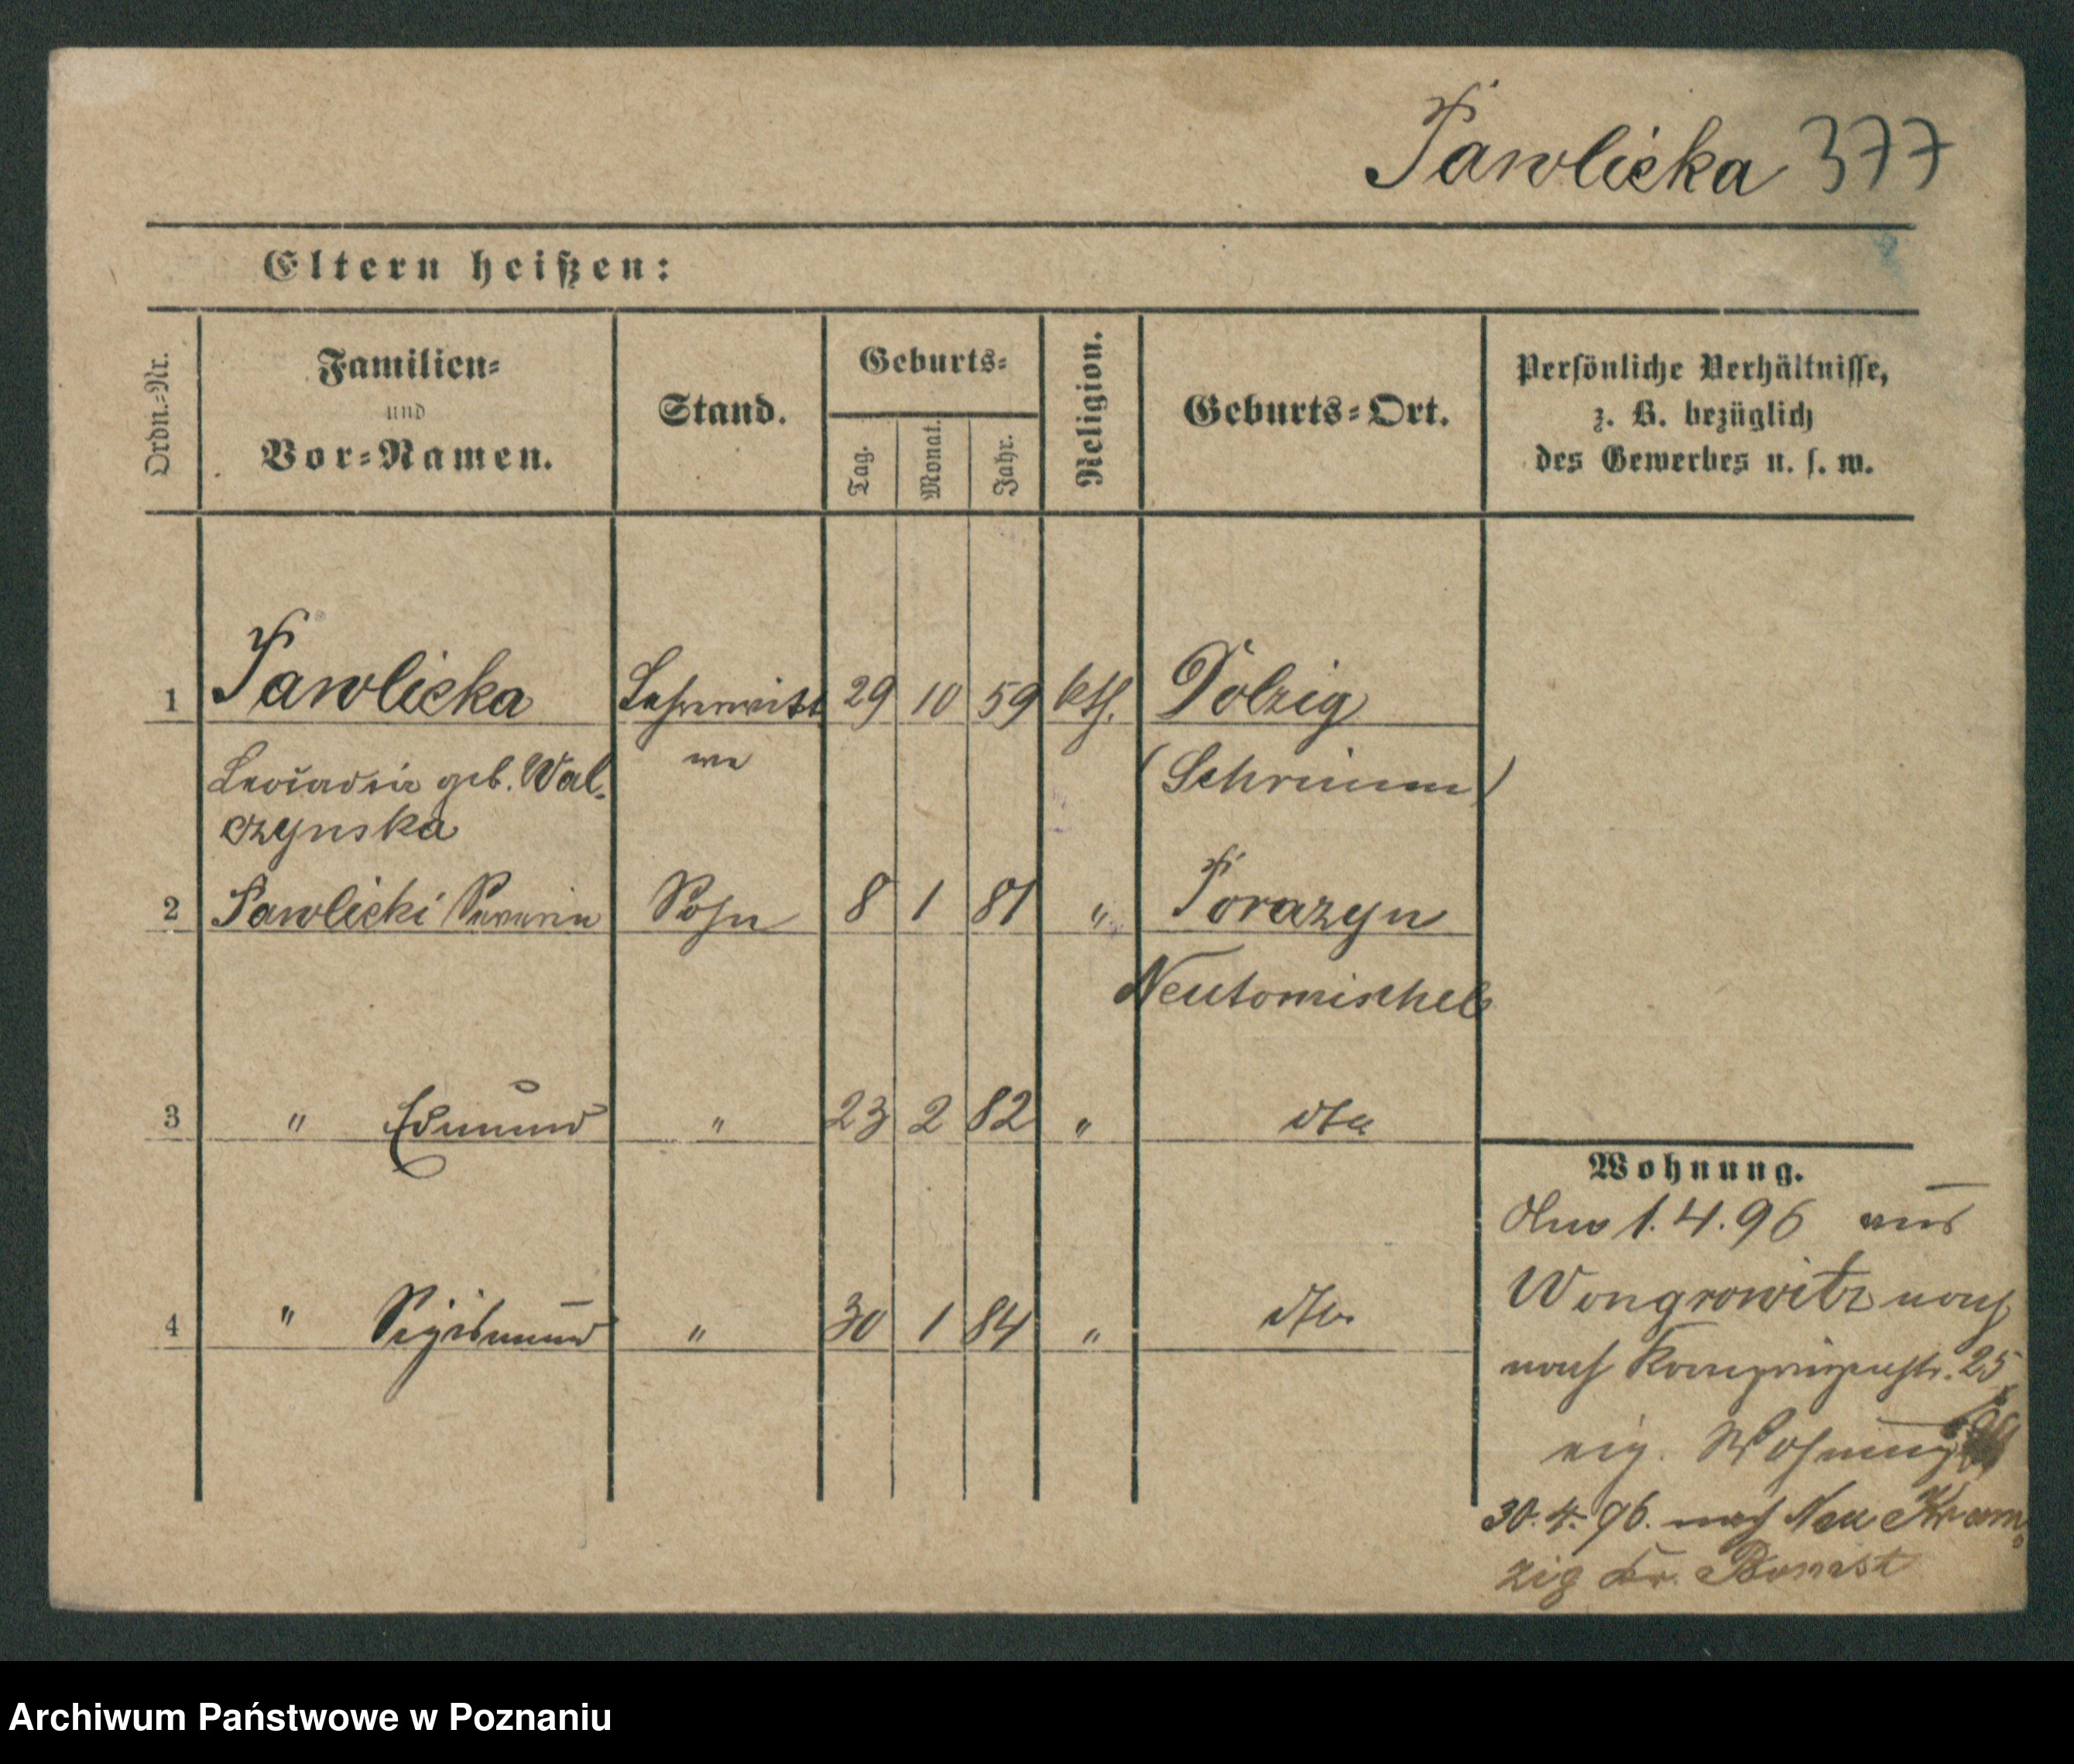 Pawlicka 377
Eltern heißen:
Ordn.-Nr.
Familien-
und
Vor-Namen.
Stand.
Geburts-
Tag.
Monat.
Jahr.
Religion.
Geburts-Ort.
Persönliche Verhältnisse,
z. B. bezüglich
des Gewerbes u. s. w.
1 Pawlicka Lehrerwitt 29 10 59 kth. Dolzig
Leocadia geb. Wal- we (Schrimm)
czynska
2 Pawlicki Severin Sohn 8 1 81 " Porazyn
Neutomischel
3 " Edmund " 23 2 82 " dto
4 " Sigismund " 30 1 84 " dto
Wohnung.
1.4.96 aus
Wongrowitz nach
nach 25
eig. Wohnung
30.4.96. nach Neu Kram-
zig Kr. Bomst
Archiwum Państwowe w Poznaniu